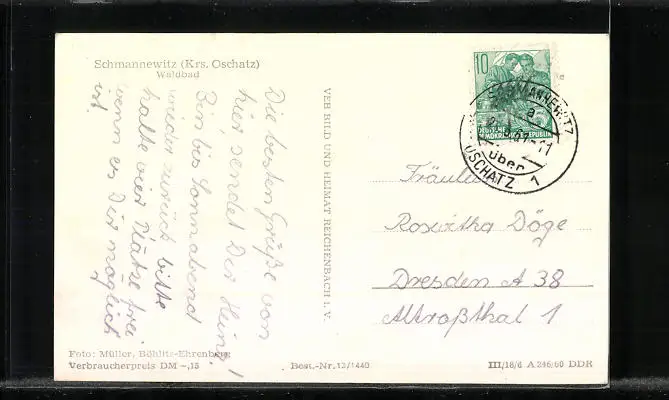 Schmannewitz (Krs. Oschatz)
Waldbad
Die besten Grüße von
hier, sendet Dir Heinz!
Bin bis Sonnabend
wieder zurück bitte
halte vier Plätze frei
wenn es Dir möglich
ist.
VEB BILD UND HEIMAT REICHENBACH i. V.
10
DEUTSCHE
DEMOKRATISCHE REPUBLIK
SCHMANNEWITZ
a
über
OSCHATZ 1
Fräulein
Roswitha Döge
Dresden A 38
Altroßthal 1
Foto: Müller, Böhlitz-Ehrenberg
Verbraucherpreis DM -,15
Best.-Nr. 13/1440
III/18/6 A 246/60 DDR